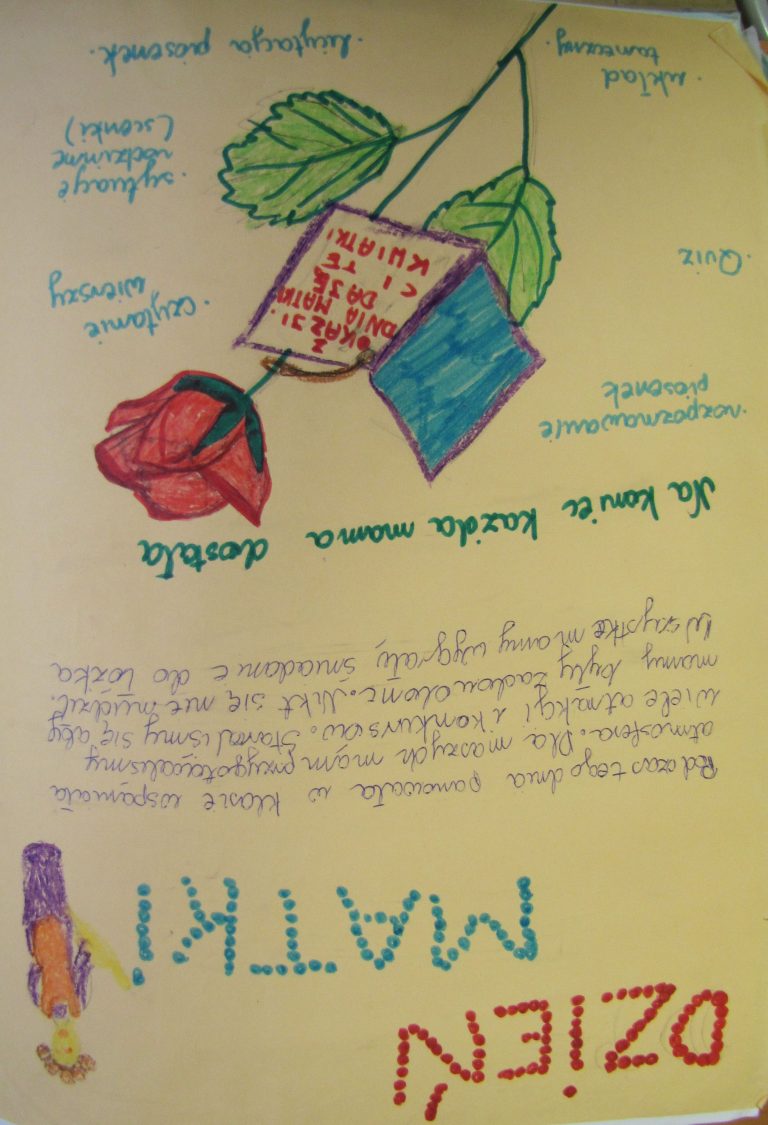 DZIEŃ
MATKI!
Podczas tego dnia panowała w klasie wspaniała
atmosfera. Dla naszych mam przygotowaliśmy
wiele atrakcji i konkursów. Staraliśmy się aby
mamy były zadowolone. Nikt się nie nudził.
Wszystkie mamy wygrały śniadanie do łóżka
Na koniec każda mama dostała
· rozpoznawanie
piosenek
· Quiz
· układ
taneczny.
· czytanie
wierszy
· sytuacje
rodzinne
(scenki)
· licytacja piosenek.
Z
OKAZJI
DNIA MATKI
DAJĘ
CI TE
KWIATKI